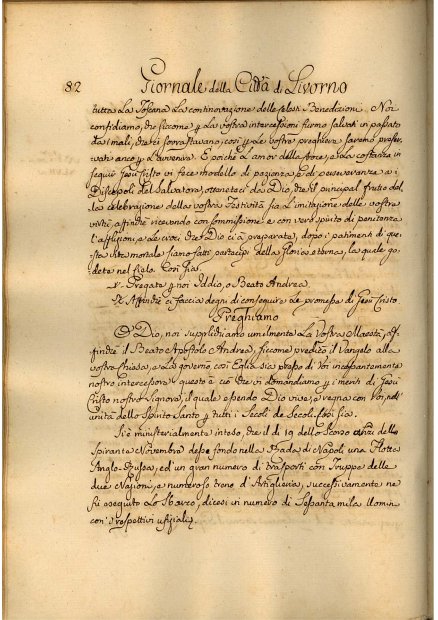 82 Giornale della Città di Livorno
tutta La Toscana La continovazione delle celesti Benedizioni. Noi
confidiamo, che siccome p la vostra intercessione fummo salvati in passato
da i mali, che ci sovrastavano, così p Le vostre preghiere saremo preser-
vati anco p L'avvenire. E poiché L'amor della Croce, e La costanza in
seguir Gesù Cristo vi fece modello di pazienza, e di perseveranza a i
Discepoli del Salvatore, otteneteci da Dio, che il principal frutto del-
la celebrazione della vostra Festività sia L'imitazione delle vostre
virtù, affinché ricevendo con sommissione e con vero spirito di penitenza
l'afflizioni, e Le croci che Dio ci à preparate, dopo i patimenti di que-
sta vita mortale siano fatti partecipi della Gloria eterna, la quale go-
dete nel Cielo. Così sia.
V. Pregate p noi Iddio, o Beato Andrea
R. Affinché ci faccia degni di conseguire Le promesse di Gesù Cristo
Preghiamo
O Dio, noi supplichiamo umilmente La Vostra Maestà, af-
finché il Beato Apostolo Andrea, siccome predicò il Vangelo alla
vostra Chiesa, e La governò, così Egli sia presso di Voi incessantemente
nostro intercessore questo è ciò che vi domandiamo p i meriti di Gesù
Cristo nostro Signore, il quale essendo Dio vive, e regna con Voi nell'
unità dello Spirito Santo p tutti i Secoli de Secoli. Così sia.
Si è ministerialmente inteso, che il dì 19 dello Scorso anzi dello
Spirante Novembre desse fondo nella Rada di Napoli una Flotta
Anglo-Russa, ed un gran numero di trasporti con Truppe delle
due Nazioni, e numeroso treno d'Artiglieria, successivamente ne
fù eseguito Lo sbarco, dicesi in numero di Sessanta mila Uomini
con i rispettivi ufiziali.